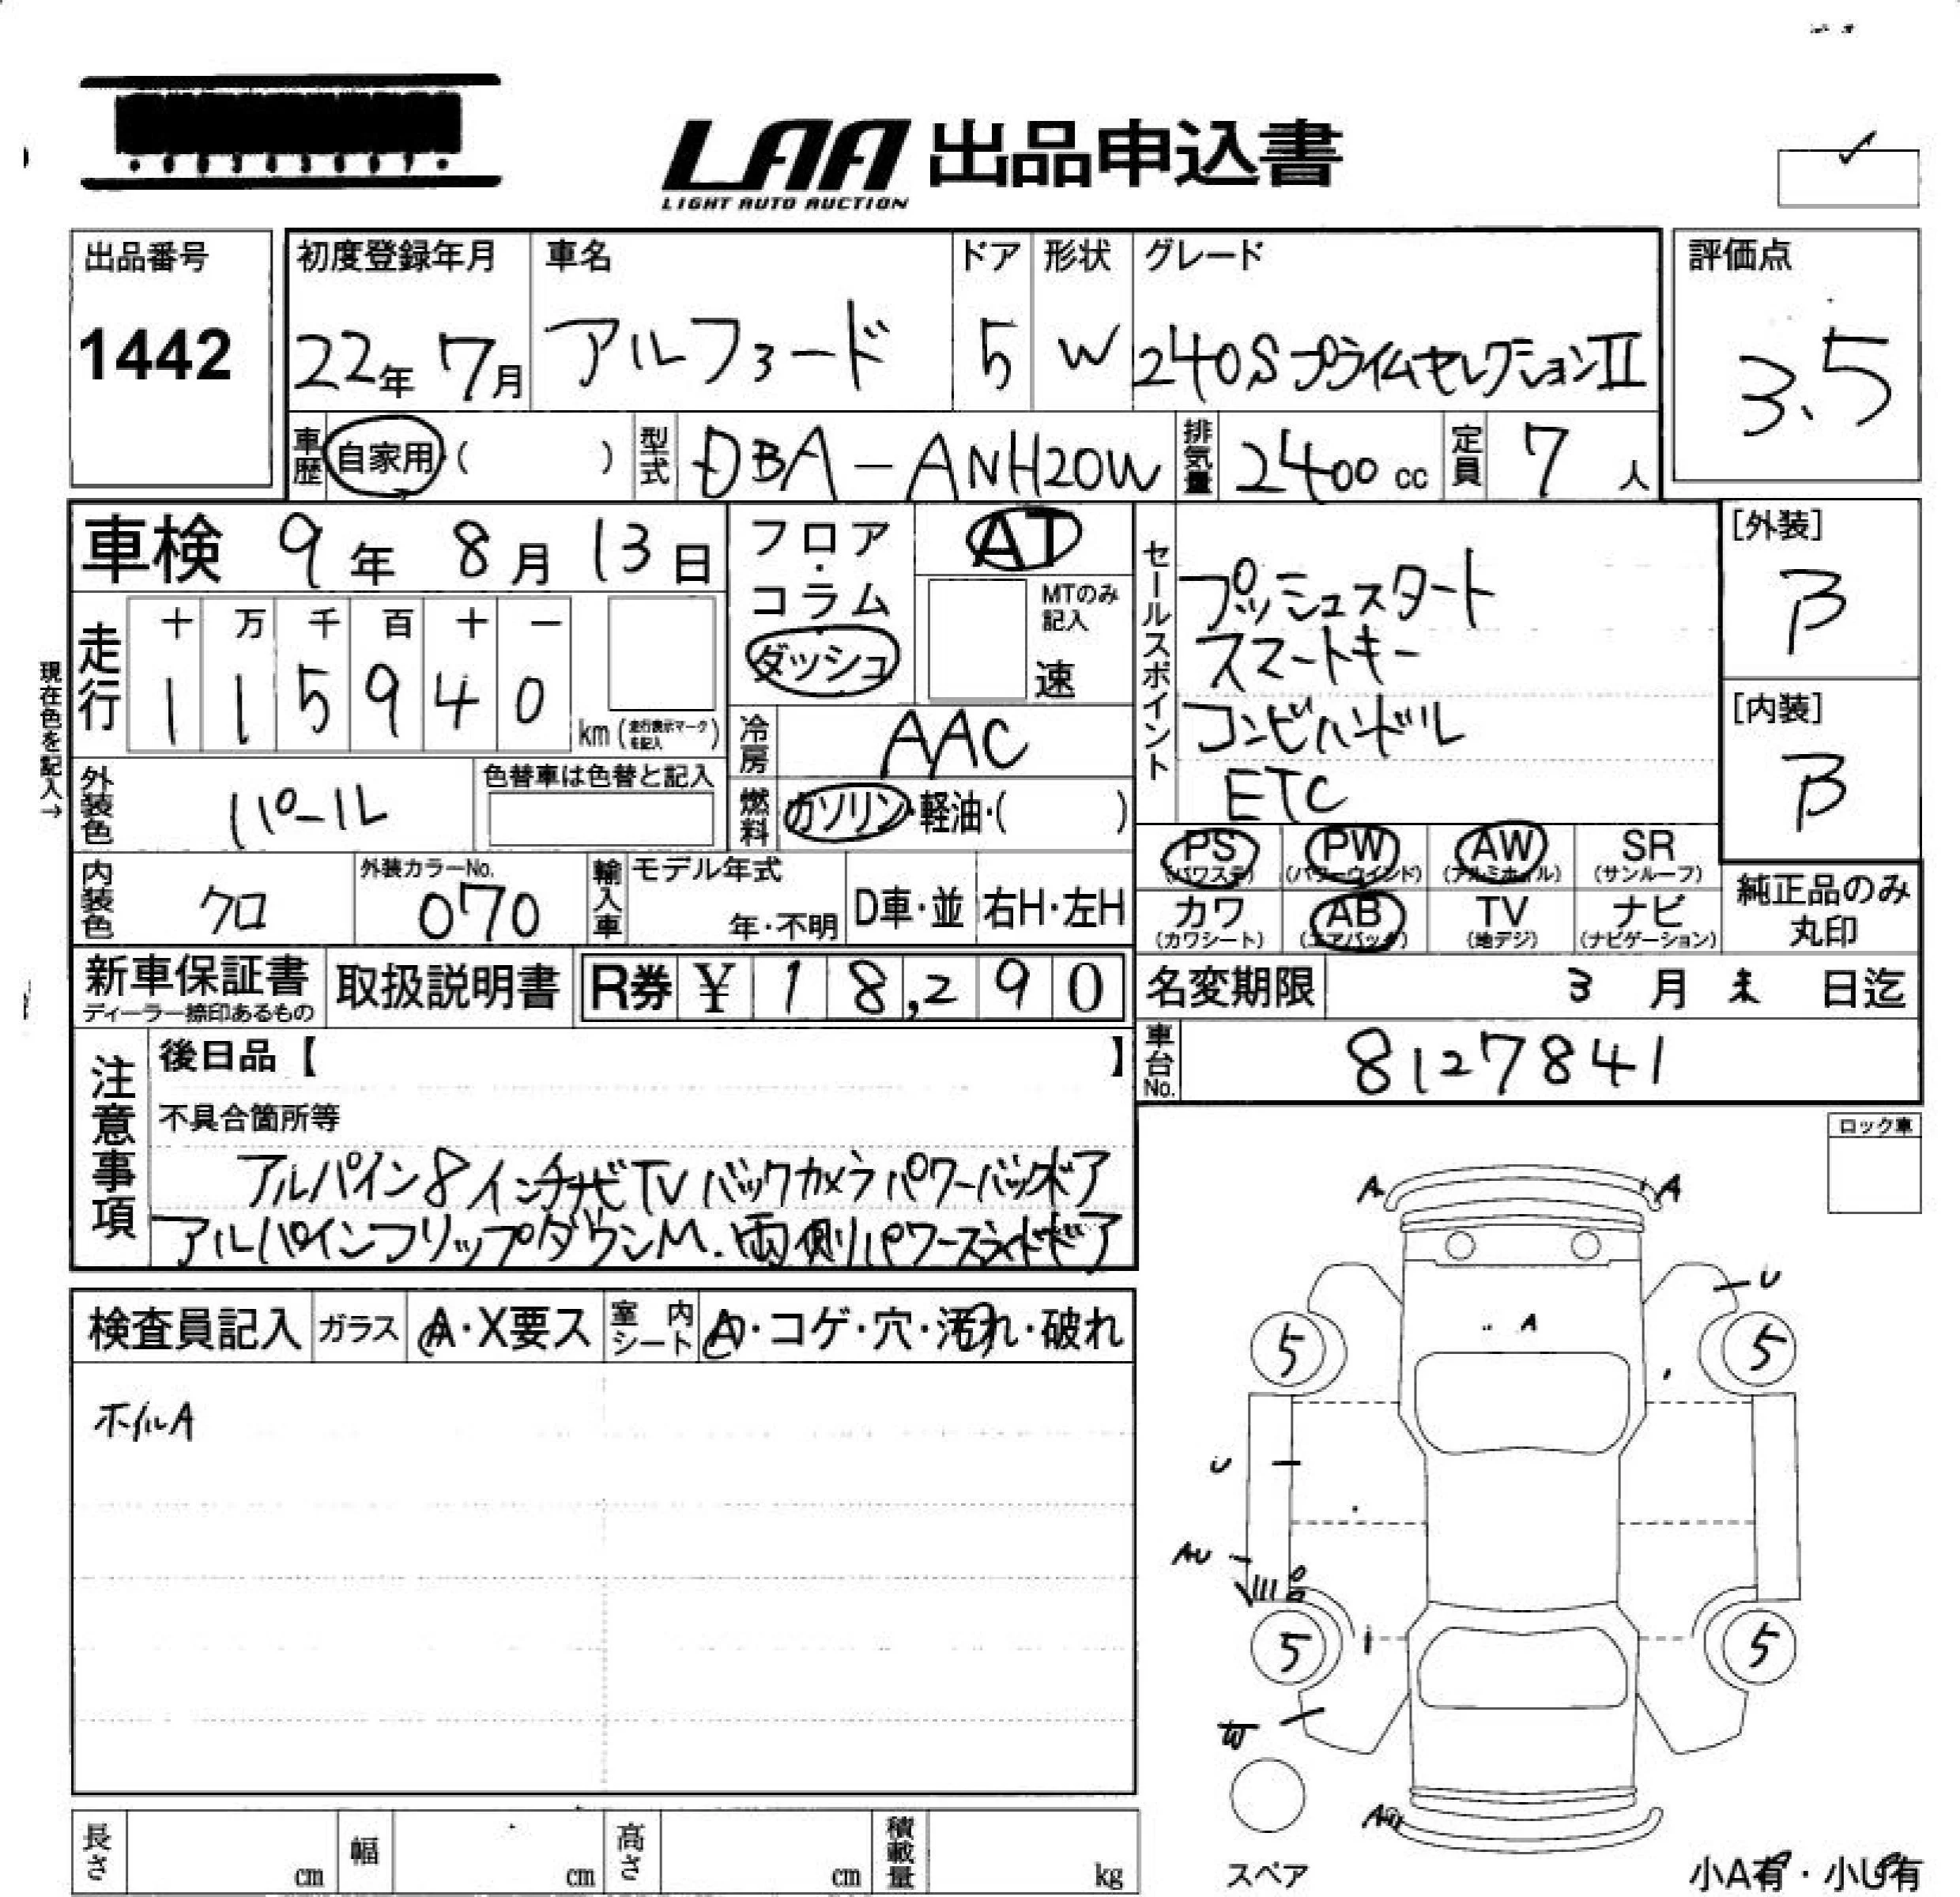 LAA 出品申込書
LIGHT AUTO AUCTION
出品番号
1442
初度登録年月
22年 7月
車名
アルファード
ドア
5
形状
W
グレード
240Sプライムセレクション II
評価点
3.5
車歴
自家用 ( )
型式
DBA-ANH20W
排気量
2400 cc
定員
7 人
車検 9年 8月 13日
現在色を記入→
走行
十 万 千 百 十 一
1 1 5 9 4 0
km (走行表示マークを記入)
フロア・コラム
ダッシュ
AT
MTのみ記入
速
冷房
AAC
燃料
ガソリン・軽油・( )
セールスポイント
プッシュスタート
スマートキー
コンビハンドル
ETC
[外装]
B
[内装]
B
外装色
パール
色替車は色替と記入
内装色
クロ
外装カラーNo.
070
輸入車
モデル年式
年・不明
D車・並
右H・左H
PS (パワステ)
PW (パワーウインド)
AW (アルミホイル)
SR (サンルーフ)
カワ (カワシート)
AB (エアバック)
TV (地デジ)
ナビ (ナビゲーション)
純正品のみ丸印
新車保証書
ディーラー捺印あるもの
取扱説明書
R券 ¥ 18,290
名変期限 3月 末 日迄
車台No.
8127841
注意事項
後日品【 】
不具合箇所等
アルパイン8インチナビTV バックカメラ パワーバックドア
アルパインフリップダウンM. 両側パワースライドドア
ロック車
検査員記入
ガラス
A・X要ス
室内シート
A・コゲ・穴・汚れ・破れ
ホイルA
A
A
U
A
5
5
U
AU
5
5
W
スペア
小A有・小U有
長さ cm
幅 cm
高さ cm
積載量 kg